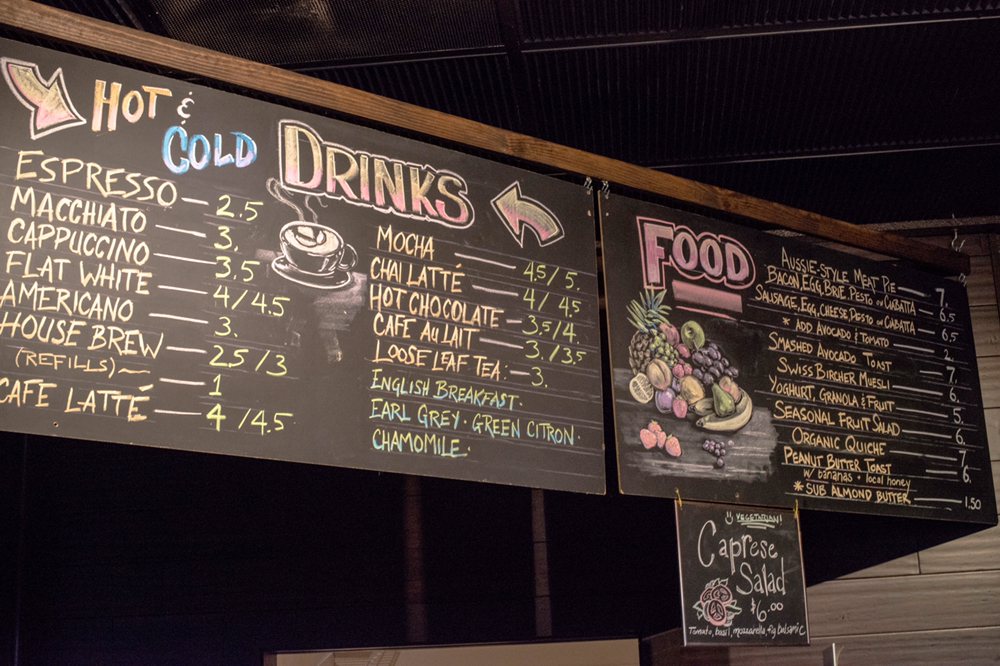 HOT & COLD DRINKS
ESPRESSO — 2.5
MACCHIATO — 3.
CAPPUCCINO — 3.5
FLAT WHITE — 4/4.5
AMERICANO — 3.
HOUSE BREW — 2.5/3
(REFILLS) — 1
CAFE LATTÉ — 4/4.5
MOCHA — 4.5/5.
CHAI LATTÉ — 4/4.5
HOT CHOCOLATE — 3.5/4.
CAFE AU LAIT — 3./3.5
LOOSE LEAF TEA. — 3.
ENGLISH BREAKFAST.
EARL GREY. GREEN CITRON.
CHAMOMILE.
FOOD
AUSSIE-STYLE MEAT PIE — 7.
BACON, EGG, BRIE, PESTO ON CIABATTA — 6.5
SAUSAGE, EGG, CHEESE, PESTO ON CIABATTA — 6.5
* ADD AVOCADO & TOMATO — 2.
SMASHED AVOCADO TOAST — 7.
SWISS BIRCHER MUESLI — 6.
YOGHURT, GRANOLA & FRUIT — 5.
SEASONAL FRUIT SALAD — 6.
ORGANIC QUICHE — 7.
PEANUT BUTTER TOAST — 6.
w/ bananas + local honey
* SUB ALMOND BUTTER — 1.50
VEGETARIAN!
Caprese
Salad
$6.00
Tomato, basil, mozzarella, fig balsamic